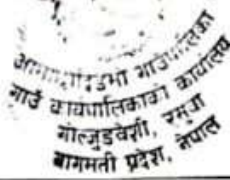 गाउँपालिका
गाउँ कार्यपालिकाको कार्यालय
गोल्जुङबेशी, रसुवा
बागमती प्रदेश, नेपाल